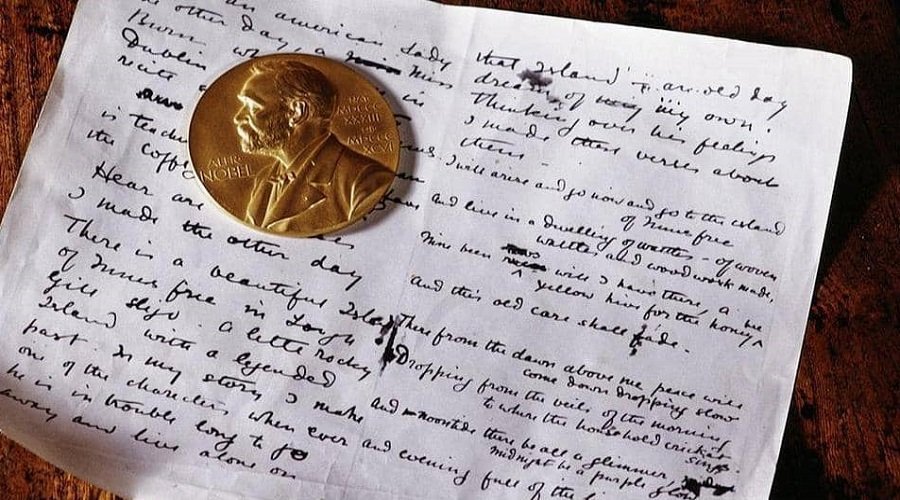 an american Lady
the other day, a Miss
Burn
Dublin who in
recite
is teach
the coffe
Hear are
I made the other day
There is a beautiful Island
of Innis free in Lough
Gill Sligo. A little rocky
Island with a legended
past. In my story I make
one of the characters when ever
he is in trouble long to go
away and live alone on
ALFR·
NOBEL
NAT·
MDCCC
XXXIII
OB·
MDCCC
XCVI
that Island – an old day
dream of my own.
Thinking over his feelings
I made these verses about
them –
I will arise and go now and go to the island
of Innis free
and live in a dwelling of wattles – of woven
wattles and wood work made,
Nine bean rows will I have there, a
yellow hive for the honey bee
And this old care shall fade.
There from the dawn above me peace will
come down dropping slow
Dropping from the veils of the morning
to where the household cricket
sings.
And noontide there be all a glimmer,
midnight be a purple glow
and evening full of the